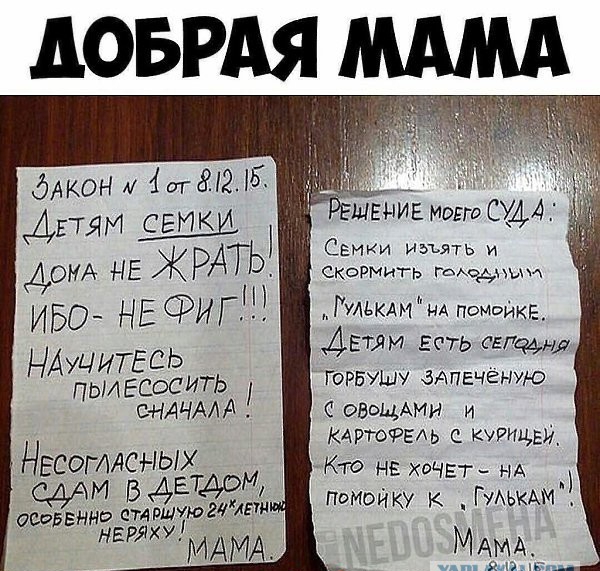 ДОБРАЯ МАМА
ЗАКОН № 1 от 8.12.15.
ДЕТЯМ СЕМКИ
ДОМА НЕ ЖРАТЬ!
ИБО - НЕ ФИГ!!!
НАУЧИТЕСЬ
ПЫЛЕСОСИТЬ
СНАЧАЛА!
НЕСОГЛАСНЫХ
СДАМ В ДЕТДОМ,
ОСОБЕННО СТАРШУЮ 24ˣ ЛЕТНЮЮ
НЕРЯХУ!
МАМА.
РЕШЕНИЕ МОЕГО СУДА:
СЕМКИ ИЗЪЯТЬ И
СКОРМИТЬ ГОЛОДНЫМ
„ГУЛЬКАМ" НА ПОМОЙКЕ.
ДЕТЯМ ЕСТЬ СЕГОДНЯ
ГОРБУШУ ЗАПЕЧЁНУЮ
С ОВОЩАМИ И
КАРТОФЕЛЬ С КУРИЦЕЙ.
КТО НЕ ХОЧЕТ - НА
ПОМОЙКУ К „ГУЛЬКАМ"!
МАМА.
8.12.15
NEDOSMEHA